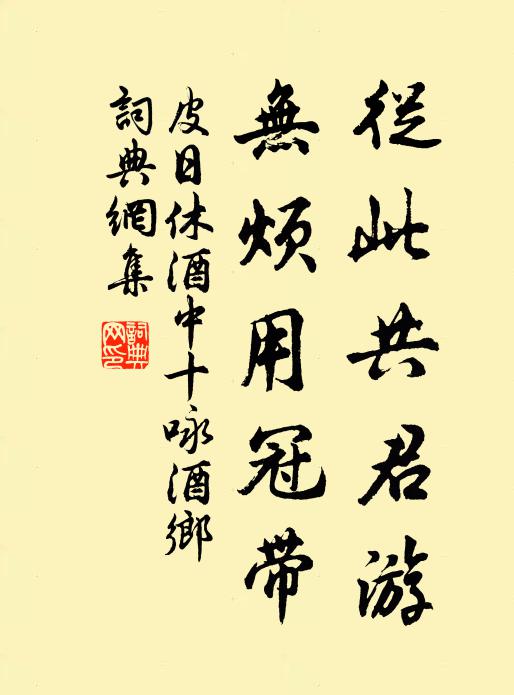 從此共君游
無煩用冠帶
皮日休酒中十咏酒鄉
詞典網集
詞典網印